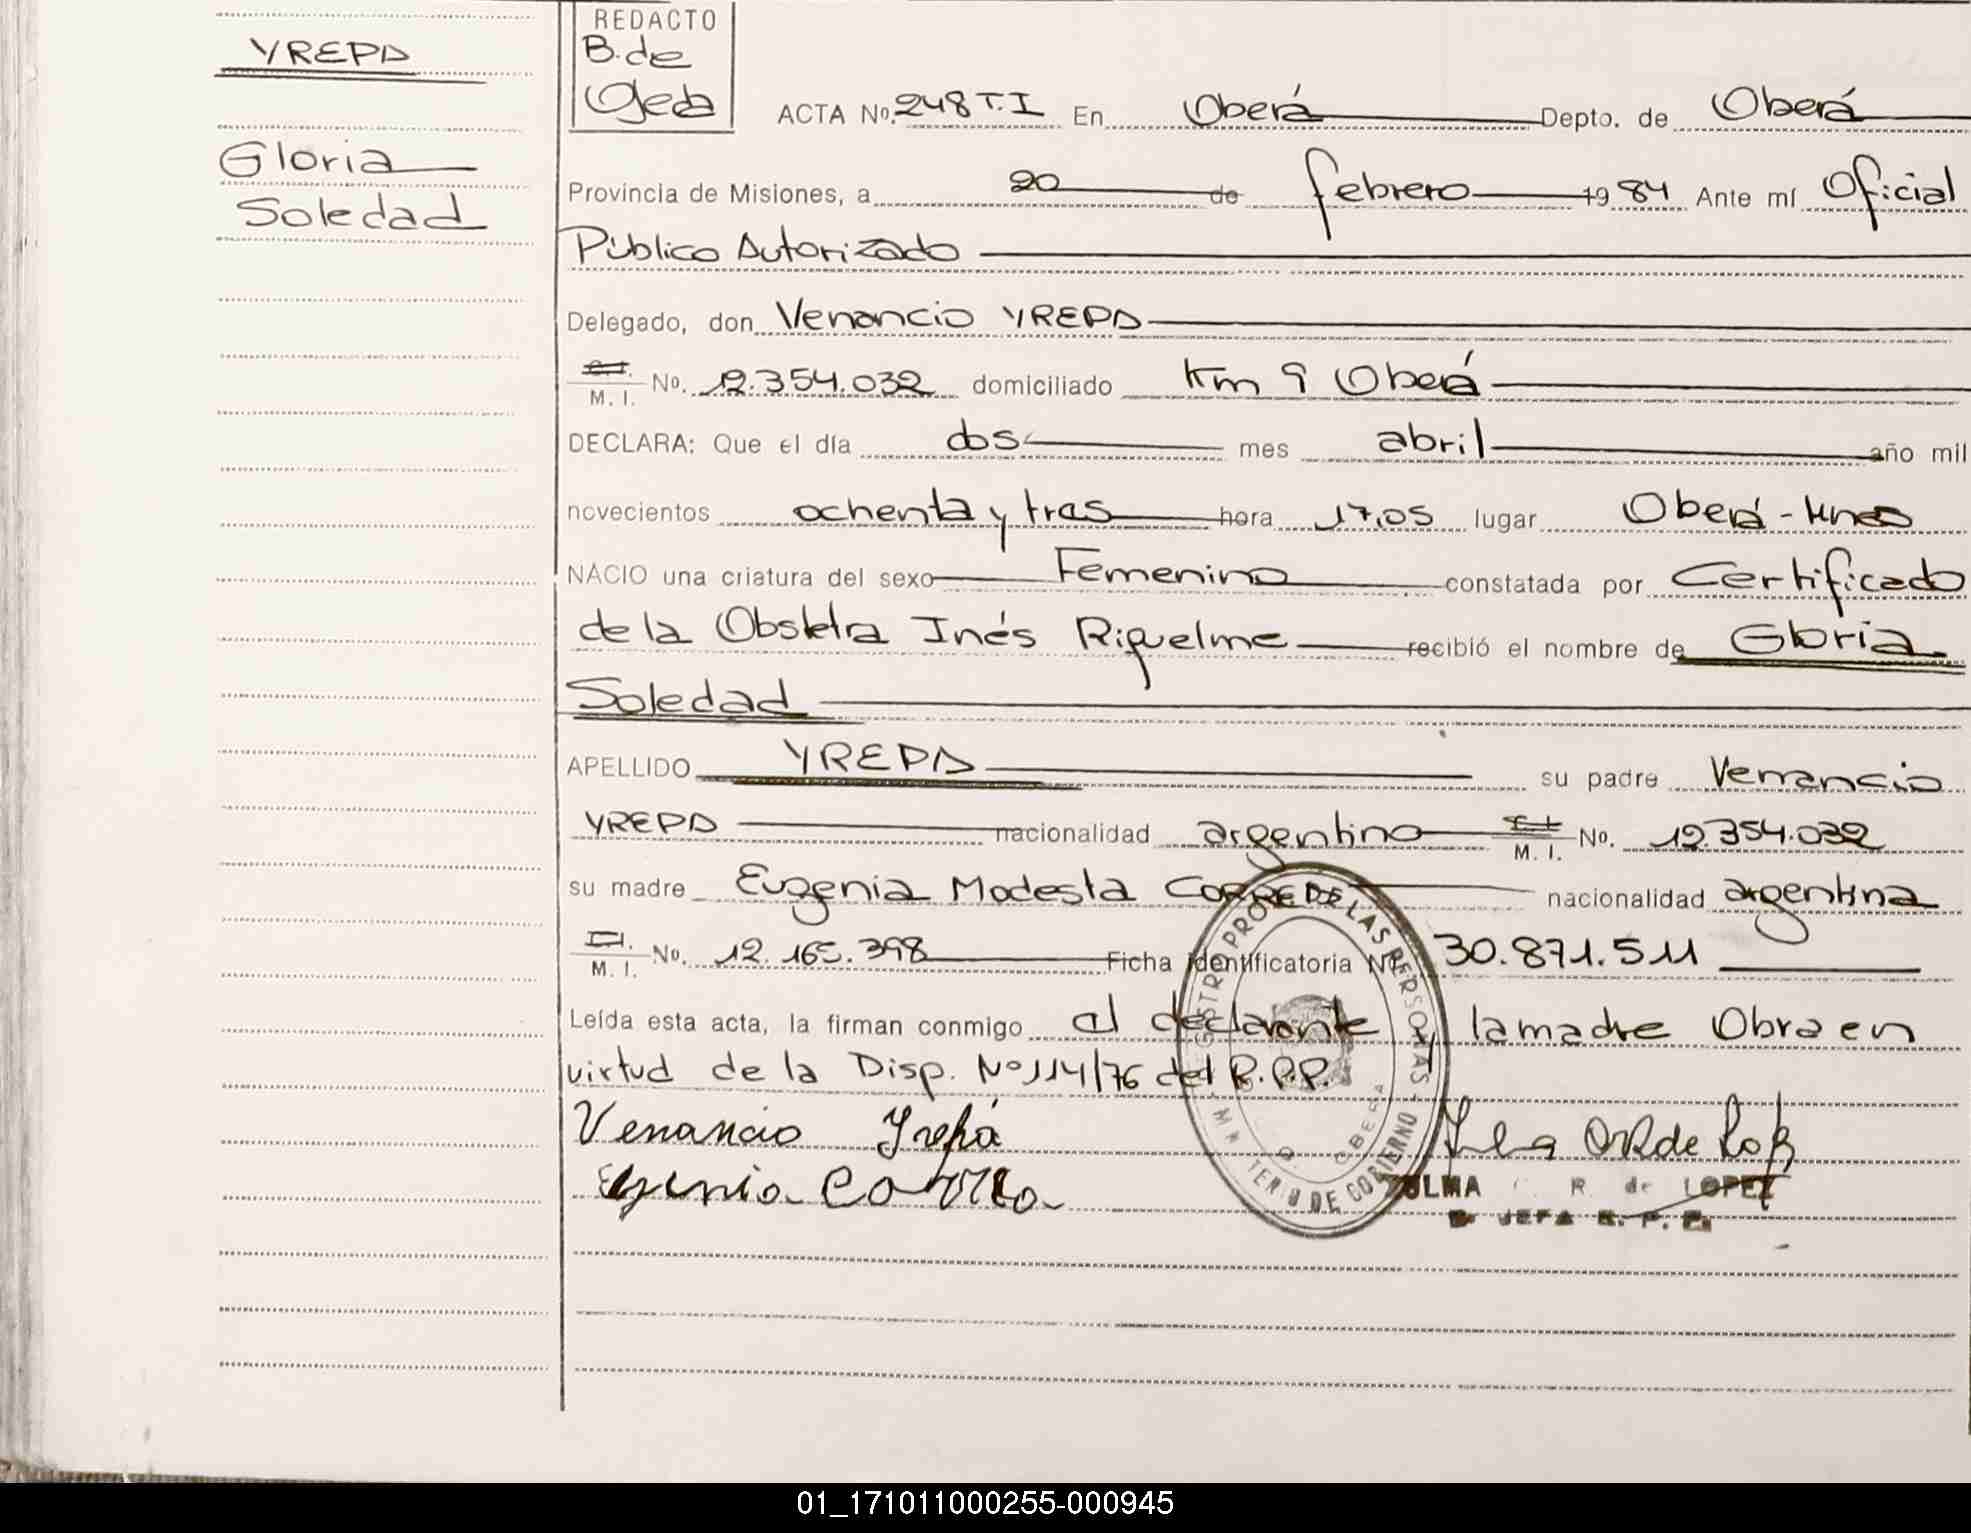 YREPA
Gloria
Soledad
REDACTO
B. de
Ojeda
ACTA No. 248 T.I En Oberá Depto. de Oberá
Provincia de Misiones, a 20 de febrero 1984 Ante mí Oficial
Público Autorizado
Delegado, don Venancio YREPA
C.I. M. I. No. 12.354.032 domiciliado Km 9 Oberá
DECLARA: Que el día dos mes abril año mil
novecientos ochenta y tres hora 17,05 lugar Oberá -
NACIO una criatura del sexo Femenino constatada por Certificado
de la Obstetra Inés Riquelme recibió el nombre de Gloria
Soledad
APELLIDO YREPA su padre Venancio
YREPA nacionalidad argentino C.I. M. I. No. 12.354.032
su madre Eugenia Modesta nacionalidad argentina
C.I. M. I. No. 12.165.398 Ficha identificatoria No. 30.871.511
Leída esta acta, la firman conmigo el declarante y la madre Obra en
virtud de la Disp. Nº 114/76 del R.P.P.
Venancio Yrepá
REGISTRO PROV. DE LAS PERSONAS - MINISTERIO DE GOBIERNO
OBERA
ZULMA R. de LOPEZ
JEFA R. P. P.
01_171011000255-000945